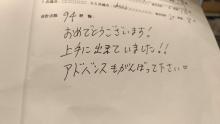 94
おめでとうございます!
上手に出来ていました!!
アドバンスもがんばって下さい=